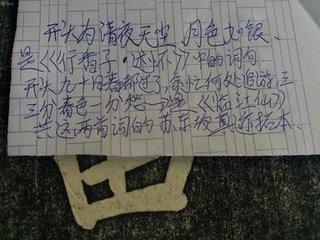 开头为清夜无尘,月色如银、
是《《行香子·述怀》中的词句
开头九十日春都过了,贪忙何处追游,三
三分春色一分愁 《临江仙》
求这两首词的 苏东坡真迹拓本、